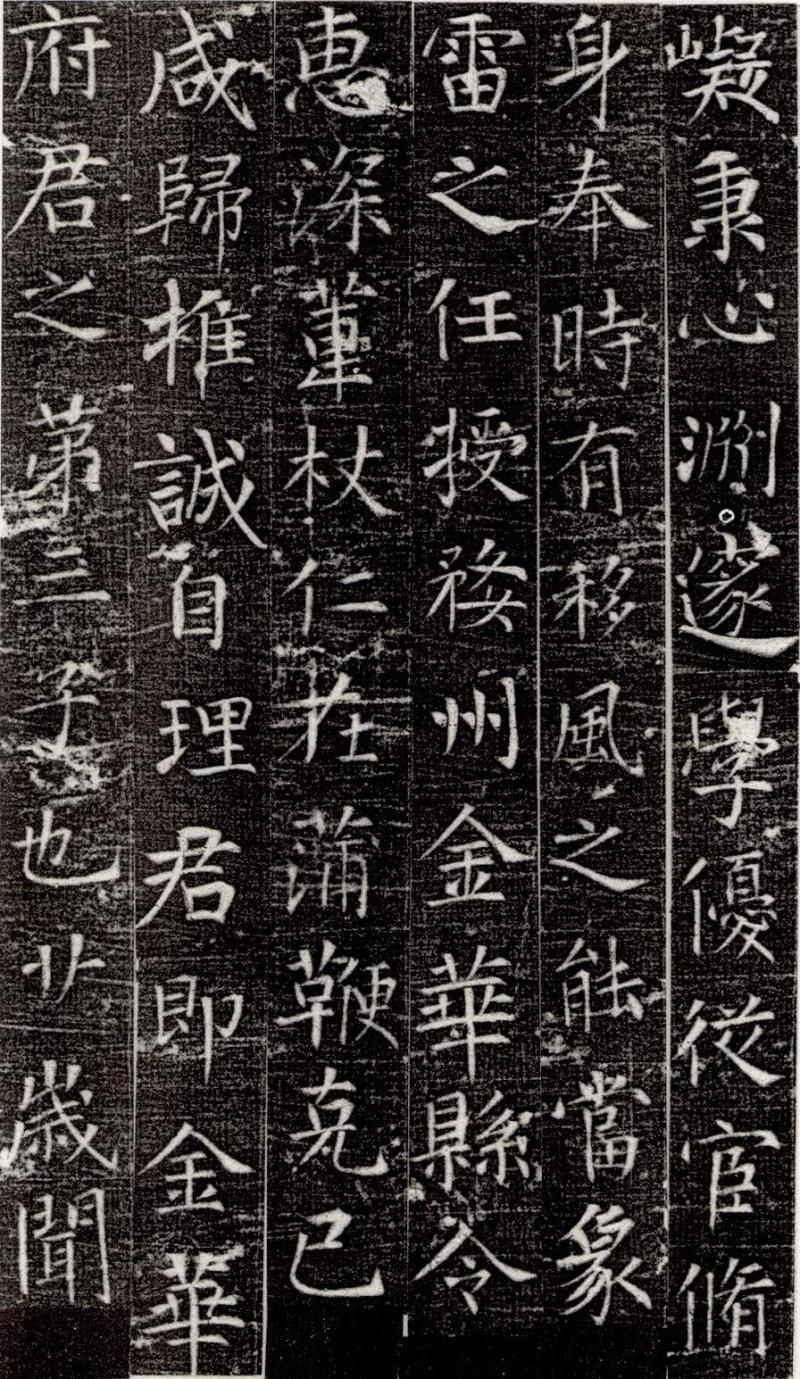 嶷秉心淵邃學優從宦脩
身奉時有移風之能當象
雷之任授婺州金華縣令
惠深蒲杖仁在蒲鞭克己
咸歸推誠自理君即金華
府君之第三子也廿歲聞